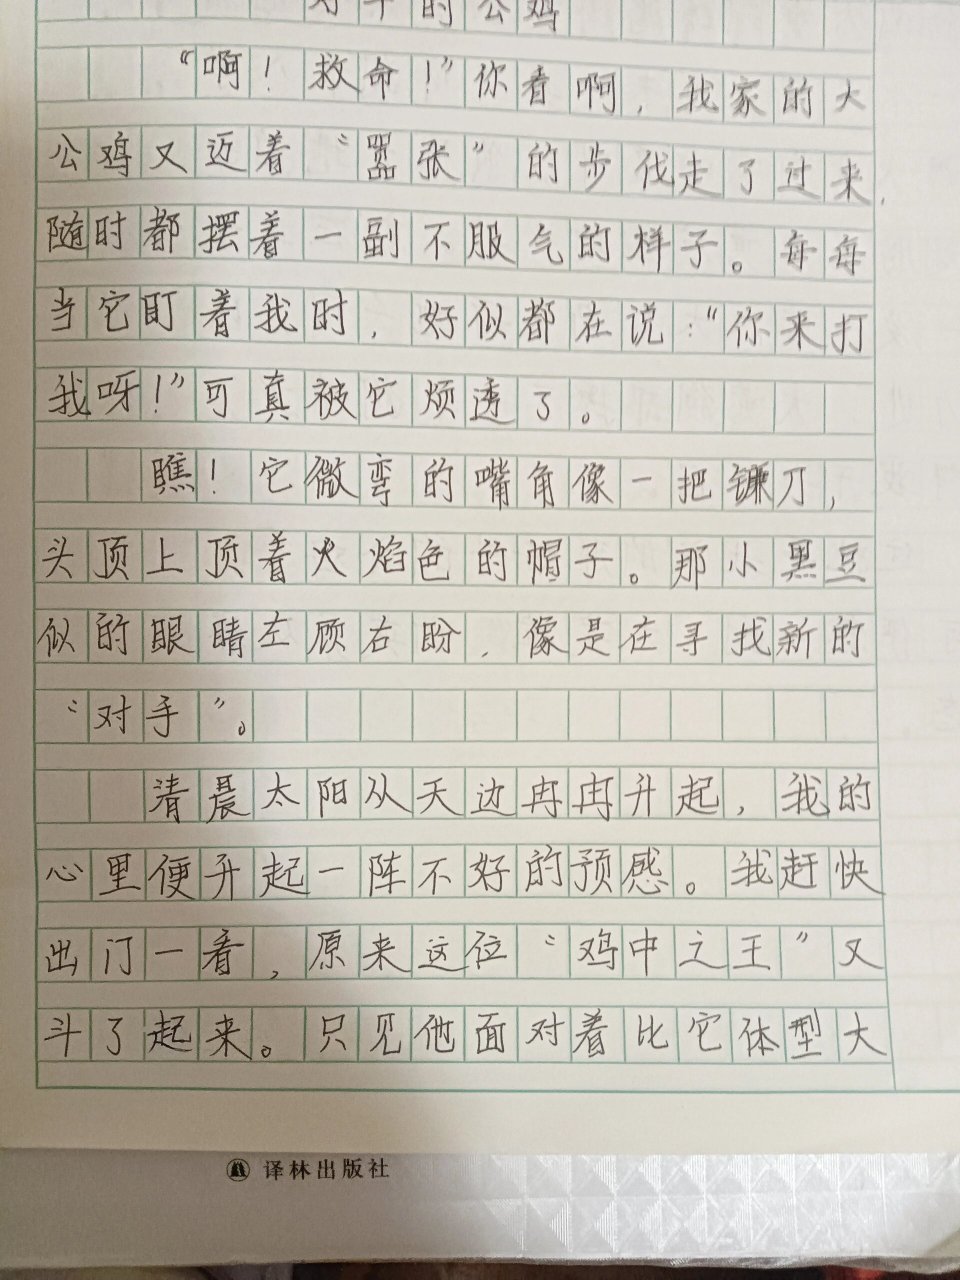 好斗的公鸡
“啊！救命！”你看啊，我家的大
公鸡又迈着“嚣张”的步伐走了过来，
随时都摆着一副不服气的样子。每每
当它盯着我时，好似都在说：“你来打
我呀！”可真被它烦透了。
瞧！它微弯的嘴角像一把镰刀，
头顶上顶着火焰色的帽子。那小黑豆
似的眼睛左顾右盼，像是在寻找新的
“对手”。
清晨太阳从天边冉冉升起，我的
心里便升起一阵不好的预感。我赶快
出门一看，原来这位“鸡中之王”又
斗了起来。只见他面对着比它体型大
译林出版社